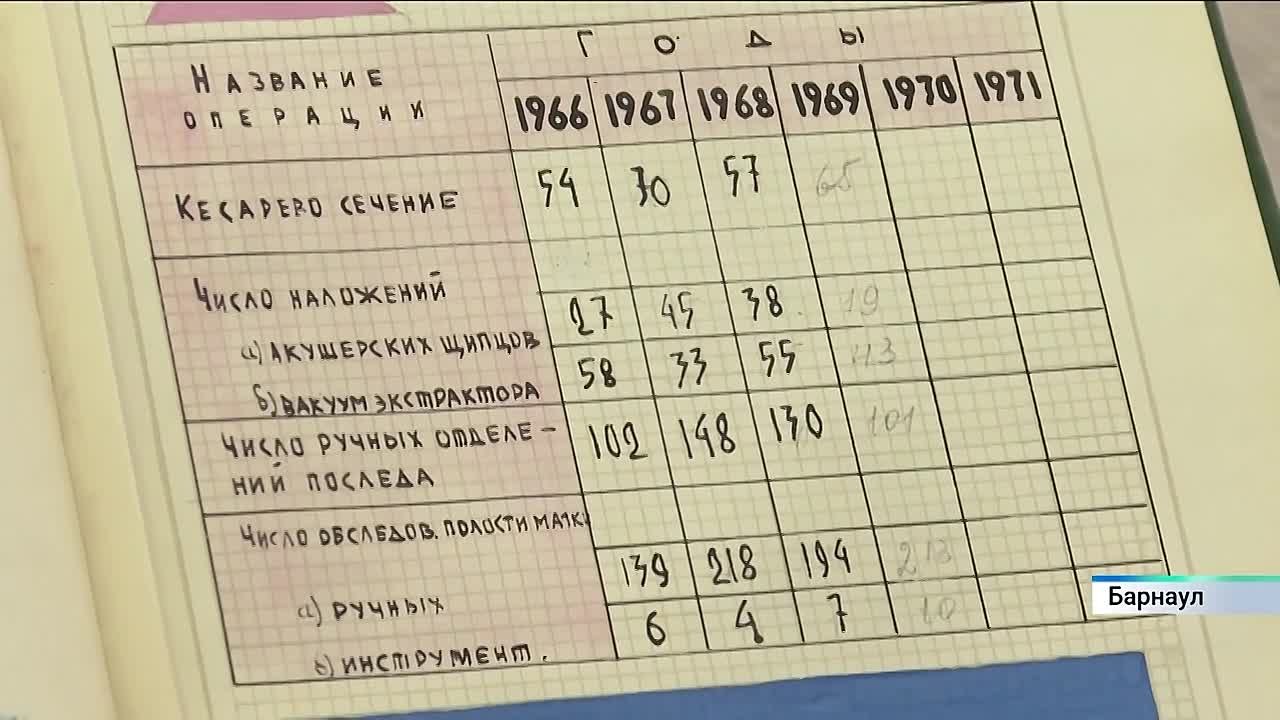 Годы
Название
операции
1966 1967 1968 1969 1970 1971
Кесарево сечение 54 70 57 65
Число наложений
а) акушерских щипцов 27 45 38 19
б) вакуум экстрактора 58 33 55
Число ручных отделе-
ний последа 102 148 130 101
Число обследов. полости матк.
а) ручных 139 218 194 213
в) инструмент. 6 4 7 10
Барнаул